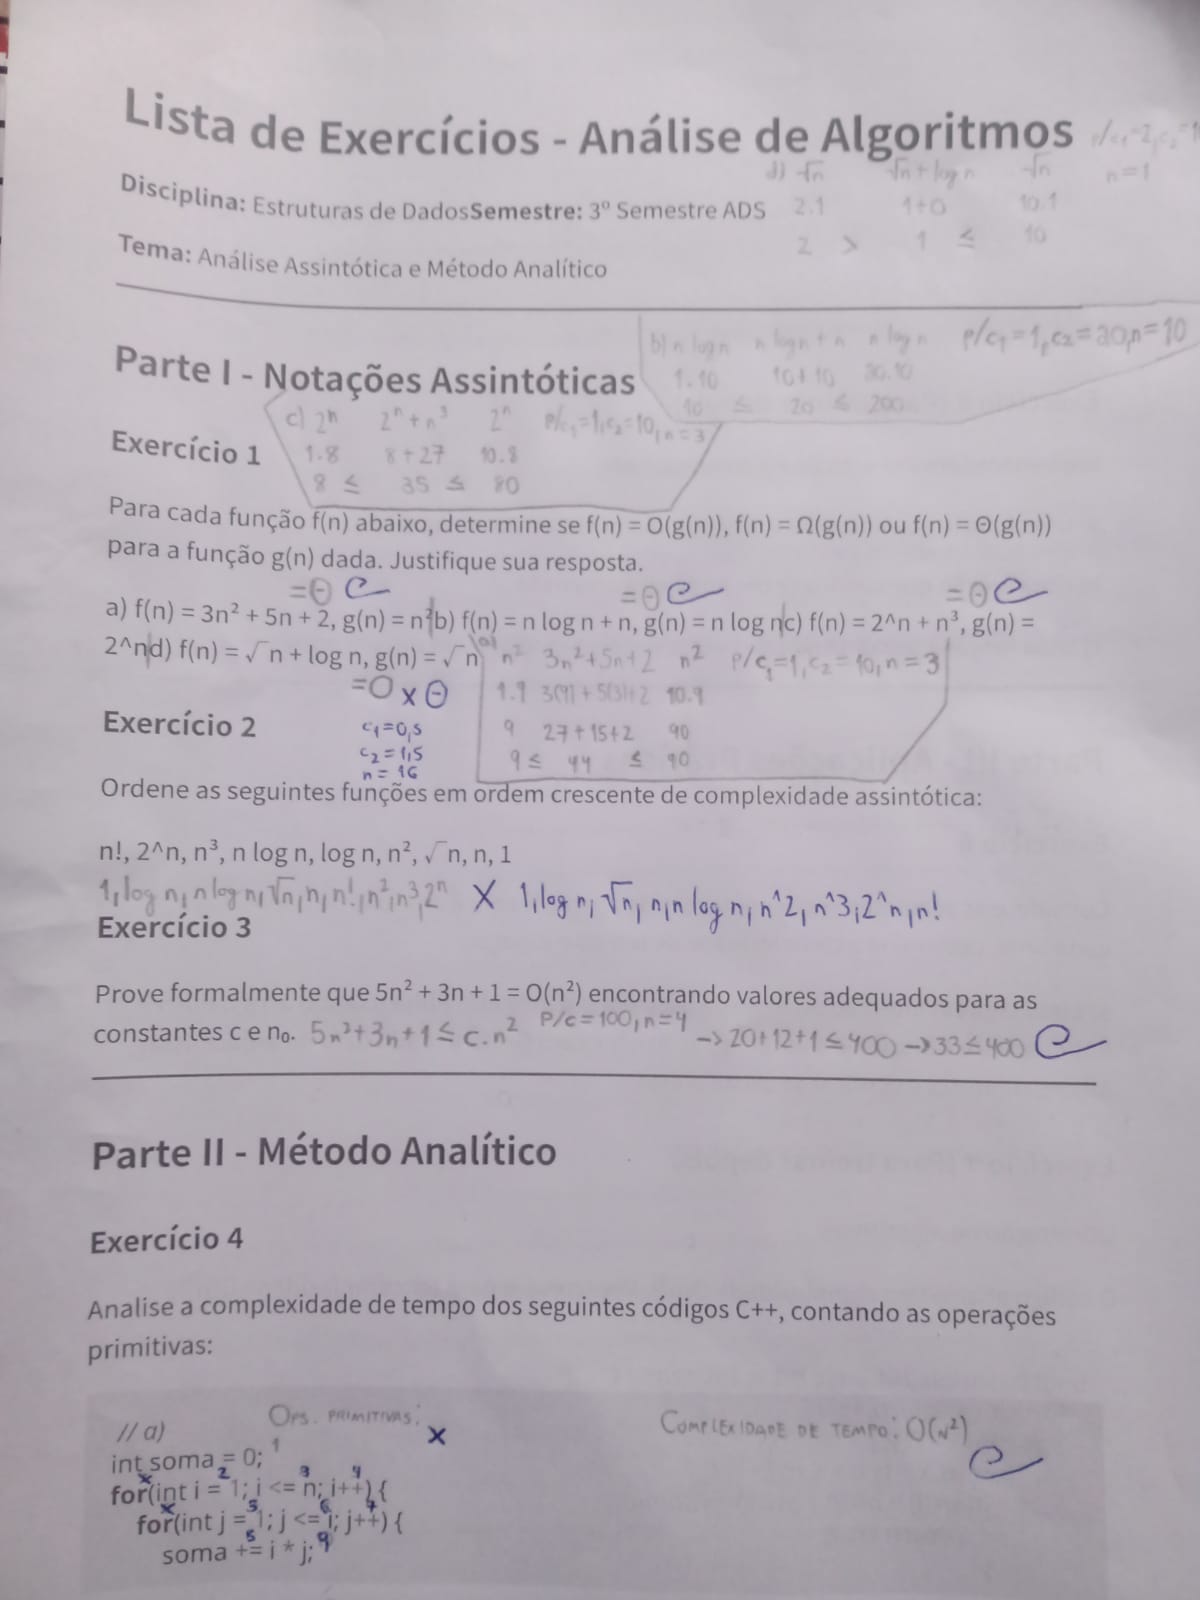 Lista de Exercícios - Análise de Algoritmos
d) √n √n + log n √n n=1
Disciplina: Estruturas de DadosSemestre: 3º Semestre ADS
2.1 1+0 10.1
2 > 1 ≤ 10
Tema: Análise Assintótica e Método Analítico
b) n log n n log n + n n log n P/c₁=1, c₂=20, n=10
1.10 10+10 20.10
10 ≤ 20 ≤ 200
Parte I - Notações Assintóticas
c) 2ⁿ 2ⁿ+n³ 2ⁿ P/c₁=1, c₂=10, n=3
1.8 8+27 10.8
8 ≤ 35 ≤ 80
Exercício 1
Para cada função f(n) abaixo, determine se f(n) = O(g(n)), f(n) = Ω(g(n)) ou f(n) = Θ(g(n))
para a função g(n) dada. Justifique sua resposta.
=Θ =Θ =Θ
a) f(n) = 3n² + 5n + 2, g(n) = n²b) f(n) = n log n + n, g(n) = n log nc) f(n) = 2^n + n³, g(n) =
2^nd) f(n) = √n + log n, g(n) = √n
=O x Θ
c₁=0,5
c₂=1,5
n=16
a) n² 3n²+5n+2 n² P/c₁=1, c₂=10, n=3
1.9 3(9)+5(3)+2 10.9
9 27+15+2 90
9 ≤ 44 ≤ 90
Exercício 2
Ordene as seguintes funções em ordem crescente de complexidade assintótica:
n!, 2^n, n³, n log n, log n, n², √n, n, 1
1, log n, n log n, √n, n, n!, n², n³, 2ⁿ X 1, log n, √n, n, n log n, n^2, n^3, 2^n, n!
Exercício 3
Prove formalmente que 5n² + 3n + 1 = O(n²) encontrando valores adequados para as
constantes c e n₀. 5n²+3n+1 ≤ c.n² P/c=100, n=4 -> 20+12+1 ≤ 400 -> 33 ≤ 400
Parte II - Método Analítico
Exercício 4
Analise a complexidade de tempo dos seguintes códigos C++, contando as operações
primitivas:
// a) OPS. PRIMITIVAS: x COMPLEXIDADE DE TEMPO: O(N²)
int soma = 0; 1
x 2 3 4
for(int i = 1; i <= n; i++) {
x 5 6 7
for(int j = 1; j <= i; j++) {
soma += i * j; 9